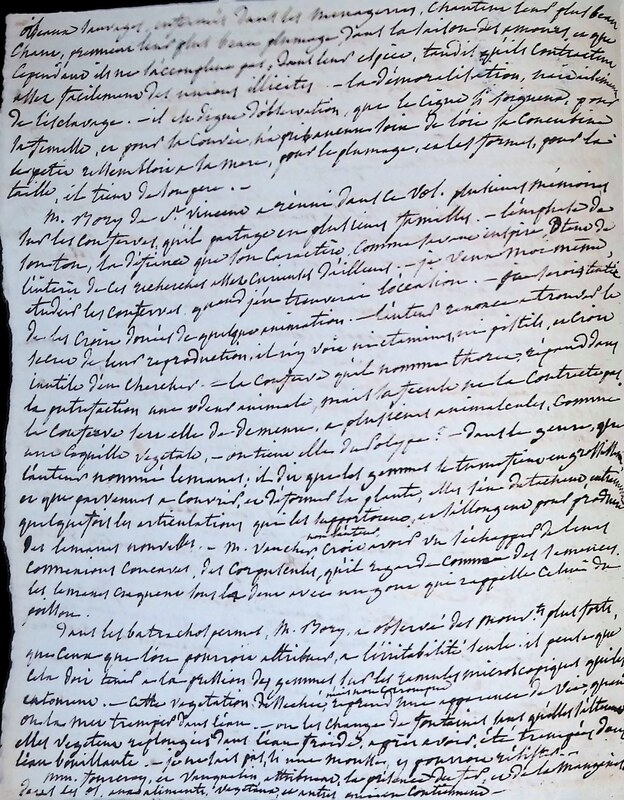 oiseaux sauvages, entretenus dans les ménageries, chantent leur plus beau
chant, prennent leur plus beau plumage dans la saison des amours, et que
cependant ils ne s'accouplent pas, dans leur espèce, tandis qu'ils contractent
assez facilement des unions illicites. — la démoralisation,
de l'esclavage. — il est digne d'observation, que le cigne si soigneux, pour
sa femelle, et pour sa couvée, n'a pris aucun soin de l'oie sa concubine
les petits ressemblent à la mère, pour le plumage, et les formes, pour la
taille, ils tiennent de leur père. —
M. Bory de St Vincent a réuni dans ce vol. plusieurs mémoires
sur les conferves, qu'il partage en plusieurs familles. — l'emphase de
son ton, la défiance que son caractère, comme savant inspire ôtent de
l'intérêt de ces recherches assez curieuses d'ailleurs. — je veux moi même,
étudier les conferves, quand j'en trouverai l'occasion. — que
de les croire douées de quelque animation. — l'auteur renonce à trouver le
secret de leur reproduction, il n'y voit ni étamines, ni pistils, et croit
inutile d'en chercher. — la conferve qu'il nomme thorea, répand dans
la putréfaction une odeur animale, mais la fécule ne la contracte pas
la conferve sert elle de demeure, à plusieurs animalcules, comme
une coquille végétale, — contient elle du Polype? — dans le genre, que
l'auteur nomme lemanea, il dit que les gemmes se tuméfient en grossissant
et que parvenues à s'ouvrir, et à former la plante, elles s'en détachent, entraînent
quelquefois les articulations qui les supportoient, et s'allongent pour produire
des lemanea nouvelles. — M. Vaucher, croit avoir vu s'échapper de leurs
connexions concaves, des corpuscules, qu'il regarde comme des semences.
les lemanea craquent sous la dent avec un goût qui rappelle celui du
poisson.
Dans les batrachospermes, M. Bory, a observé des mouvts plus forts,
que ceux que l'on pourroit attribuer, à l'irritabilité seule: il pense que
cela doit tenir à la pression des gemmes sur les rameaux microscopiques qui les
entourent. — cette végétation desséchée, mais non corrompue reprend une apparence de vie, quand
on la met tremper dans l'eau — on les change de fontaines sans qu'elles s'altèrent
elles végètent replongées dans l'eau froide, après avoir été trempées dans
l'eau bouillante. — je ne sais pas, si une mousse, y pourroit résister. —
MM. fourcroy, et Vauquelin, attribuent, la présence du fer, et de la manganèse
dans les os, aux alimens, végétaux, et autres qui en contiennent. —